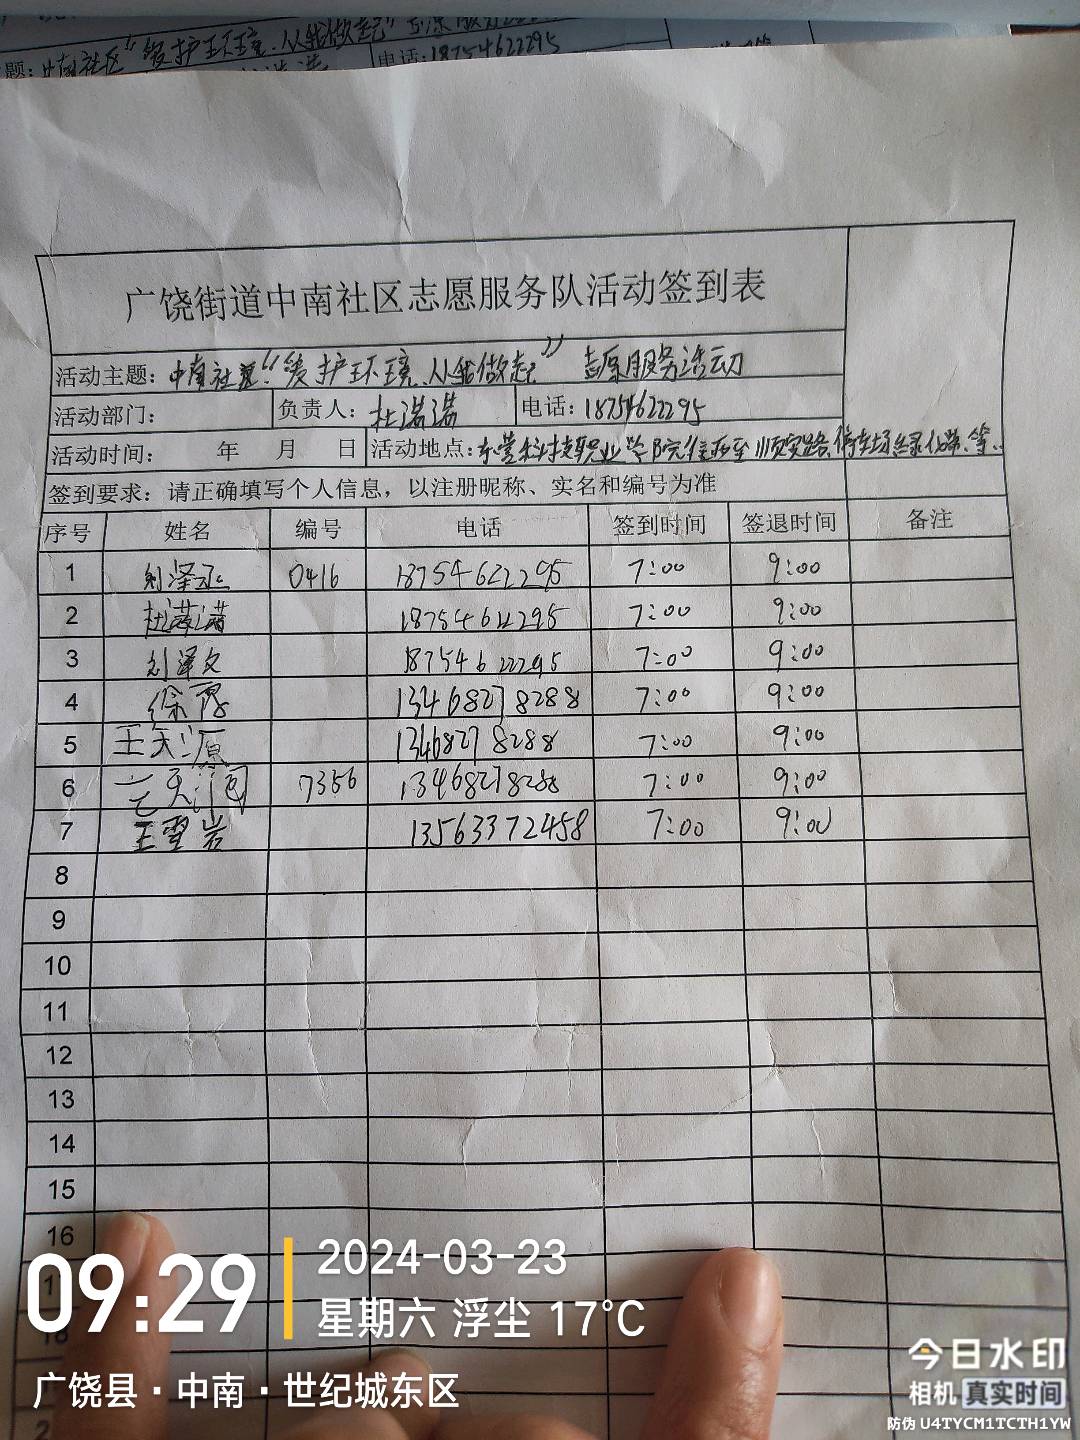 题: 中南社区“爱护环境、从我做起”志愿服务
电话:18754622295
广饶街道中南社区志愿服务队活动签到表
活动主题: 中南社区“爱护环境、从我做起”志愿服务活动
活动部门: 负责人: 杜满满 电话: 18754622295
活动时间: 年 月 日 活动地点: 东营科技职业学院往西至顺安路、停车场绿化带、等..
签到要求: 请正确填写个人信息, 以注册昵称、实名和编号为准
序号 姓名 编号 电话 签到时间 签退时间 备注
1 刘泽丞 0416 18754622295 7:00 9:00
2 杜满满 18754622295 7:00 9:00
3 刘泽文 18754622295 7:00 9:00
4 徐霞 13468278288 7:00 9:00
5 王天源 13468278288 7:00 9:00
6 王天润 7356 13468278288 7:00 9:00
7 王雪岩 13563372458 7:00 9:00
8
9
10
11
12
13
14
15
16
09:29
2024-03-23
星期六 浮尘 17°C
广饶县·中南·世纪城东区
今日水印
相机 真实时间
防伪 U4TYCM1TCTH1YW